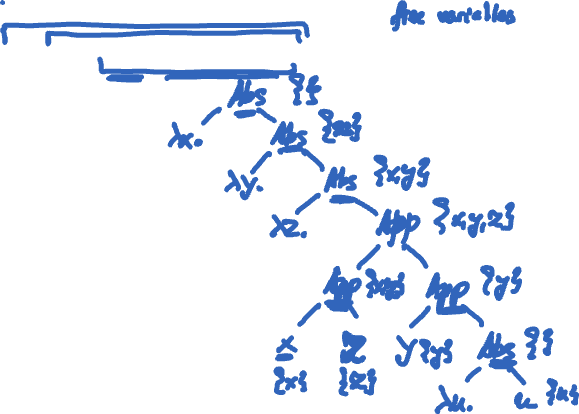 free variables
Abs {}
λx. Abs {x}
λy. Abs {x,y}
λz. App {x,y,z}
App {x,z} App {y}
x z y {y} Abs {}
{x} {z} λu. u {u}